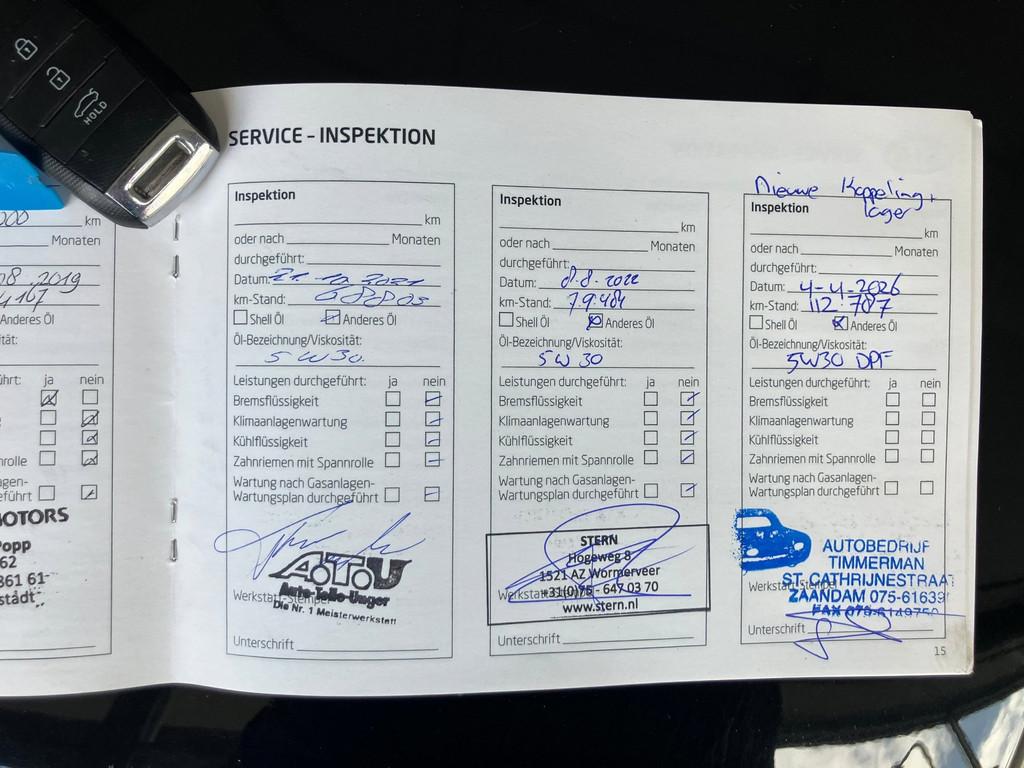 HOLD
SERVICE - INSPEKTION
000 km
Monaten
08.2019
4167
Anderes Öl
ität:
ührt: ja nein
nrolle
agen-
eführt
MOTORS
Popp
62
361 61-
städt
Inspektion
km
oder nach Monaten
durchgeführt:
Datum: 21.10.2021
km-Stand:
Shell Öl Anderes Öl
Öl-Bezeichnung/Viskosität:
5W30.
Leistungen durchgeführt: ja nein
Bremsflüssigkeit
Klimaanlagenwartung
Kühlflüssigkeit
Zahnriemen mit Spannrolle
Wartung nach Gasanlagen-
Wartungsplan durchgeführt
A.T.U
Auto-Teile-Unger
Die Nr. 1 Meisterwerkstatt
Werkstatt-Stempel
Unterschrift
Inspektion
km
oder nach Monaten
durchgeführt:
Datum: 8.8.2022
km-Stand: 79.484
Shell Öl Anderes Öl
Öl-Bezeichnung/Viskosität:
5W 30
Leistungen durchgeführt: ja nein
Bremsflüssigkeit
Klimaanlagenwartung
Kühlflüssigkeit
Zahnriemen mit Spannrolle
Wartung nach Gasanlagen-
Wartungsplan durchgeführt
STERN
Hogeweg 8
1521 AZ Wormerveer
+31(0)75 - 647 03 70
www.stern.nl
Unterschrift
Nieuwe Koppeling +
lager
Inspektion
km
oder nach Monaten
durchgeführt:
Datum: 4-4-2026
km-Stand: 112.787
Shell Öl Anderes Öl
Öl-Bezeichnung/Viskosität:
5W30 DPF
Leistungen durchgeführt: ja nein
Bremsflüssigkeit
Klimaanlagenwartung
Kühlflüssigkeit
Zahnriemen mit Spannrolle
Wartung nach Gasanlagen-
Wartungsplan durchgeführt
AUTOBEDRIJF
TIMMERMAN
ST. CATHRIJNESTRAAT
Werkstatt-Stempel
ZAANDAM 075-61639
FAX 075-6149750
Unterschrift
15